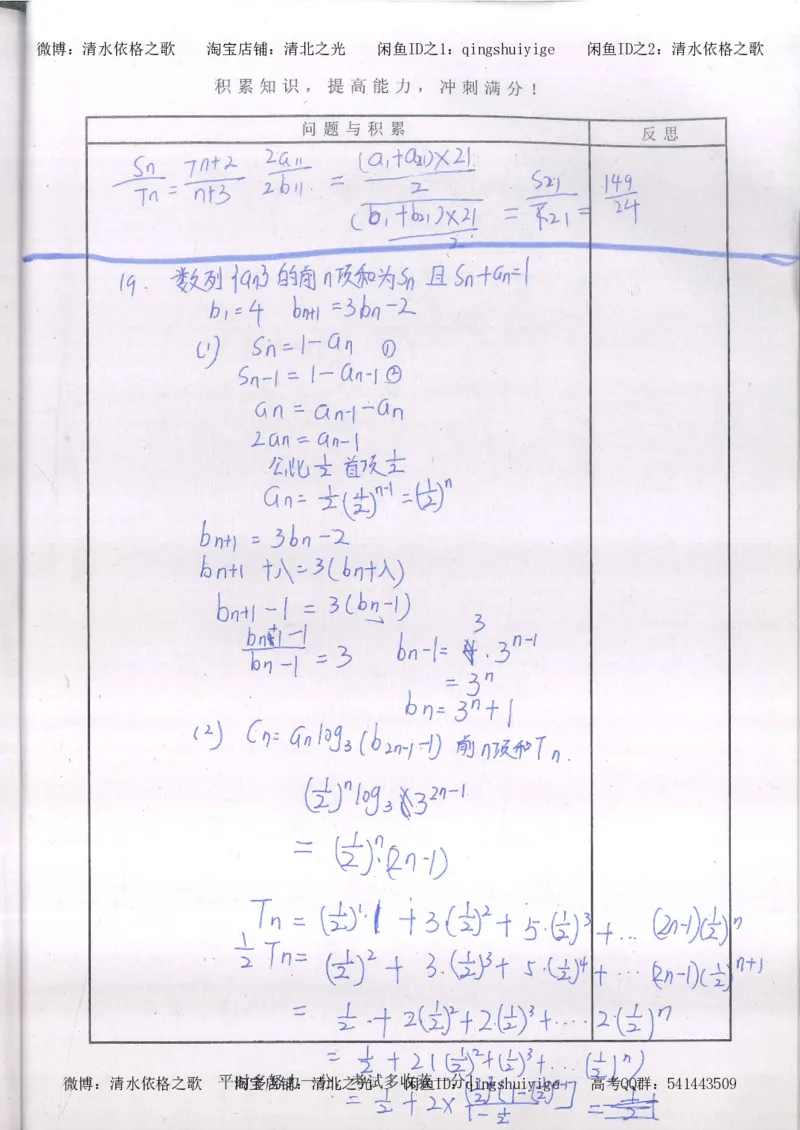 微博：清水依格之歌 淘宝店铺：清北之光 闲鱼ID之1：qingshuiyige 闲鱼ID之2：清水依格之歌
积累知识，提高能力，冲刺满分！
问题与积累 反思
Sn/Tn = (7n+2)/(n+3) 2a11/2b11 = ((a1+a21)×21/2)/((b1+b21)×21/2) = S21/T21 = 149/24
19. 数列{an}的前n项和为Sn 且Sn+an=1
b1=4 bn+1=3bn-2
(1) Sn=1-an ①
Sn-1=1-an-1 ②
an=an-1-an
2an=an-1
公比1/2 首项1/2
an=1/2(1/2)^(n-1)=(1/2)^n
bn+1=3bn-2
bn+1+λ=3(bn+λ)
bn+1-1=3(bn-1)
(bn+1-1)/(bn-1)=3 bn-1=3·3^(n-1)
=3^n
bn=3^n+1
(2) Cn=an log3(b2n-1-1) 前n项和Tn.
(1/2)^n log3 3^(2n-1)
=(1/2)^n·(2n-1)
Tn=(1/2)^1·1+3(1/2)^2+5·(1/2)^3+…(2n-1)(1/2)^n
1/2Tn=(1/2)^2+3·(1/2)^3+5·(1/2)^4+…(2n-1)(1/2)^(n+1)
=1/2+2(1/2)^2+2·(1/2)^3+…2·(1/2)^n
=1/2+2((1/2)^2+(1/2)^3+…(1/2)^n)
微博：清水依格之歌 淘宝店铺：清北之光 闲鱼ID之1：qingshuiyige 高考QQ群：541443509